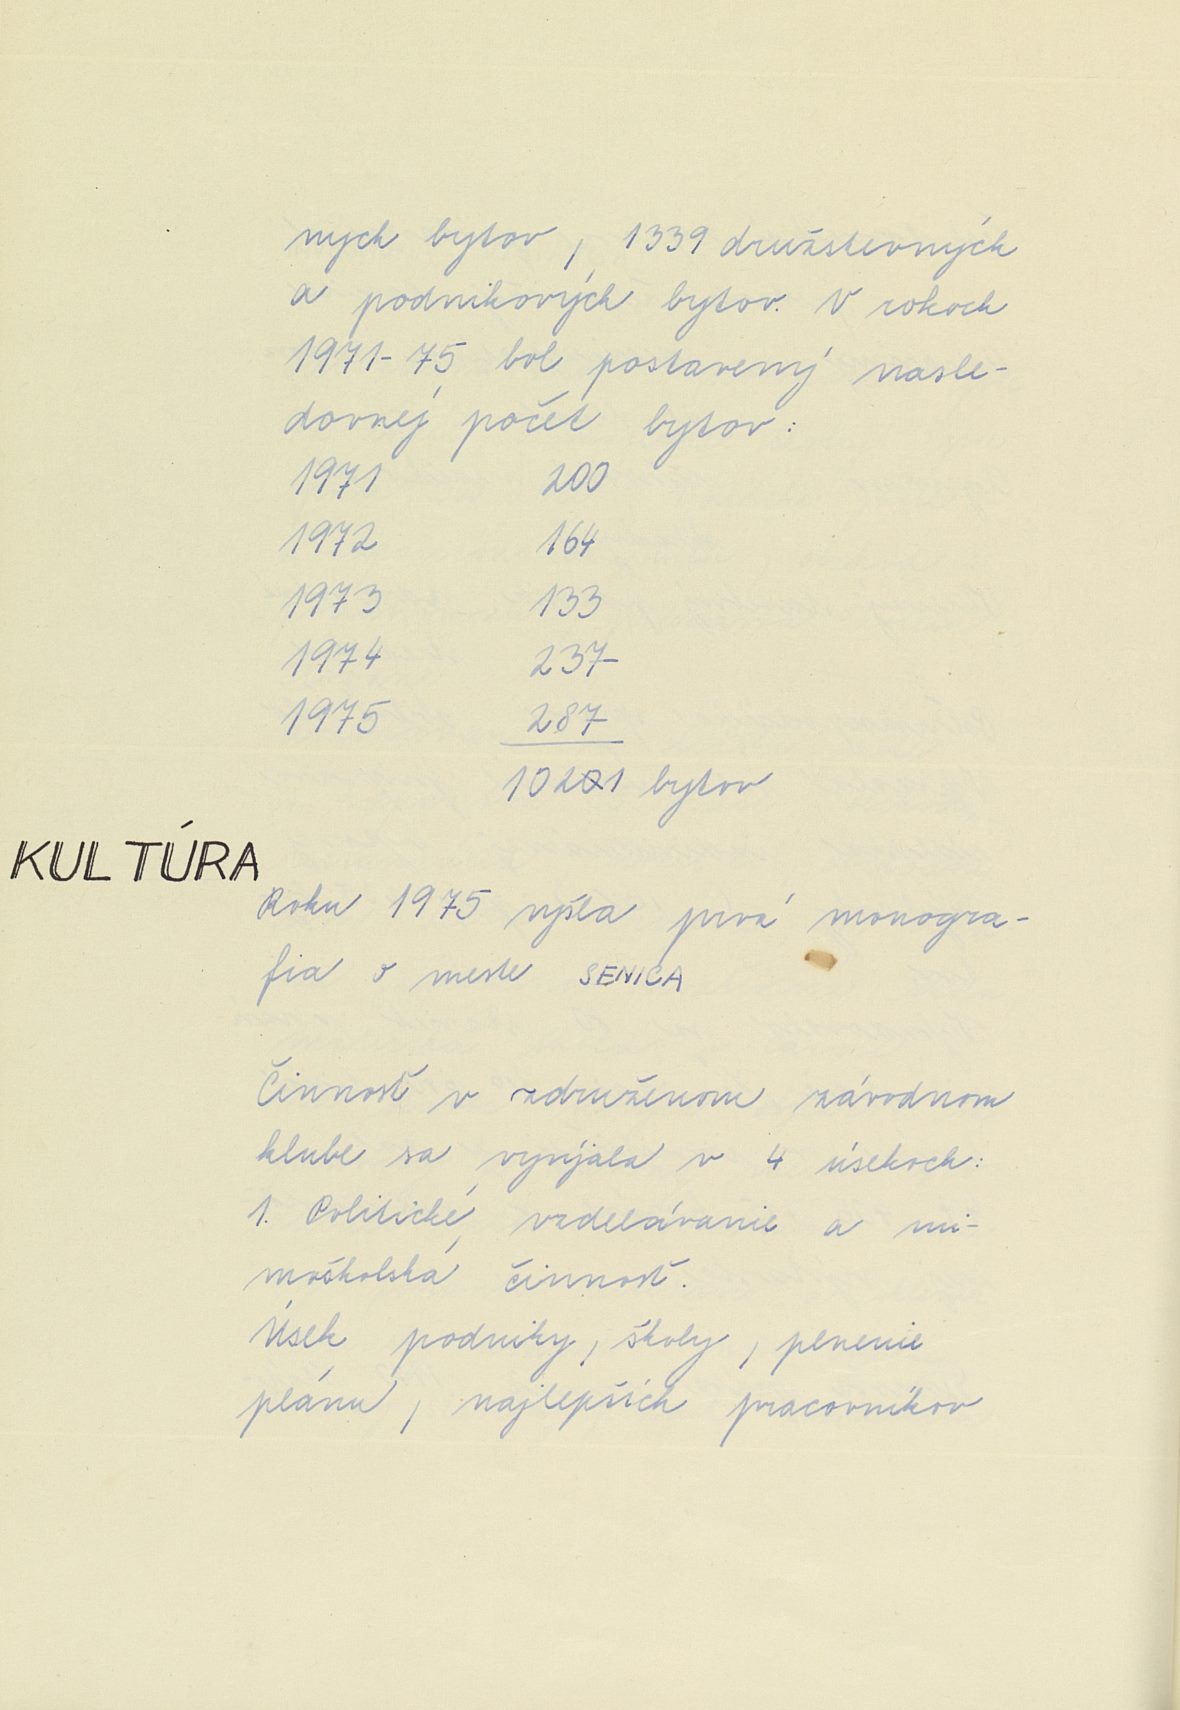 nych bytov, 1339 družstevných
a podnikových bytov. V rokoch
1971-75 bol postavený nasle-
dovnej počet bytov:
1971 200
1972 164
1973 133
1974 237
1975 287
1021 bytov
KULTÚRA
Roku 1975 vyšla prvá monogra-
fia o meste SENICA
Činnosť v združenom závodnom
klube sa vyvýjala v 4 úsekoch:
1. Politické vzdelávanie a mi-
moškolská činnosť.
Úsek podniky, školy, plnenie
plánu, najlepších pracovníkov